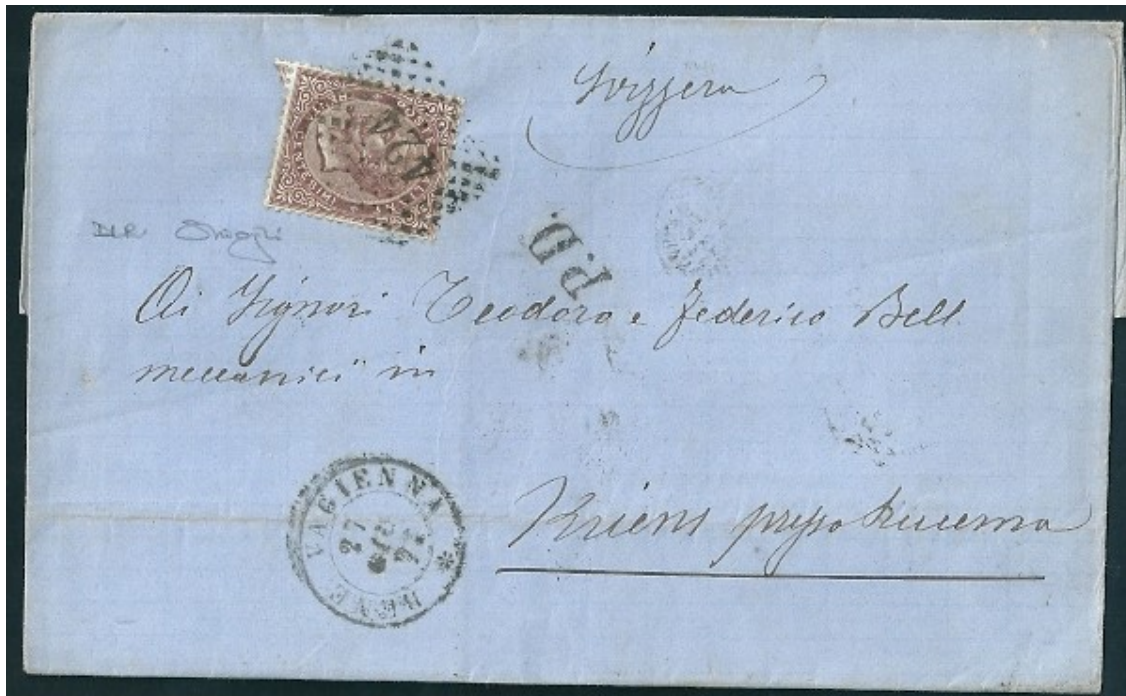 Svizzera
424
CENTESIMI
P.D.
Ai Signori Teodoro e Federico Bell
meccanici in
BENE VAGIENNA
27
Kriens presso Lucerna